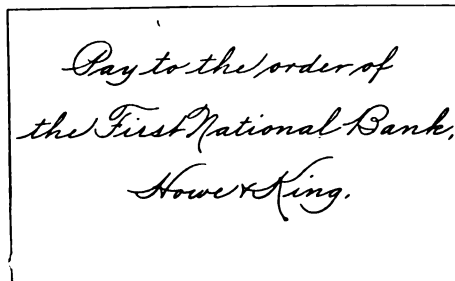 Pay to the order of
the First National Bank,
Howe & King.